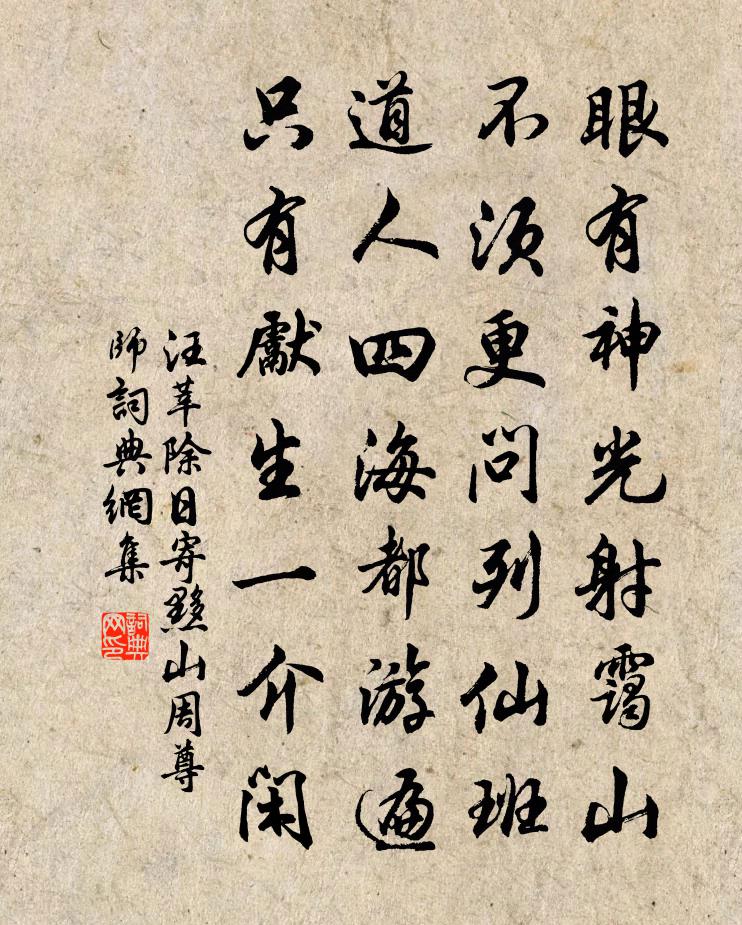 眼有神光射靄山
不須更問列仙班
道人四海都游遍
只有獻生一介閑
汪莘除日寄黟山周尊
師詞典網集
詞典
网印